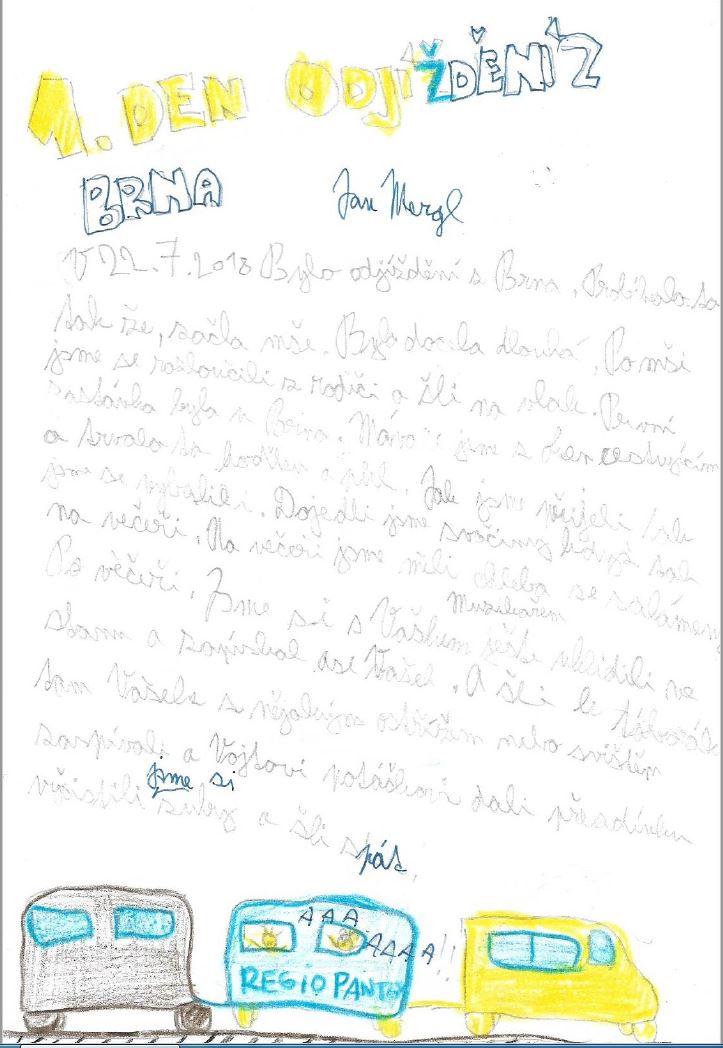 1. DEN ODJÍŽDĚNÍ Z
BRNA
Jan Mergl
V 22.7.2018 Bylo odjíždění s Brna. Probíhalo to
tak že, začla mše. Bylo docela dlouhá. Po mši
jsme se rozloučili s rodiči a šli na vlak. První
zastávka byla v Brna. jsme s
a trvalo to hodinu a půl. Jak jsme přijeli tak
jsme se vybalili. Dojedli jsme svačinu když tak
na večeři. Na večeři jsme měli chleba se salámem
Po věčeři. Jsme si s Vaškem Muzikářem ještě uklidili ve
stanu a zapískal ase Vašek. A šli k táborák
tam Vašek s nějakým ostřížem nebo svištěm
zaspívala a Vojtovi potáškovi dali přesdívku
jsme si
vičistili zuby a šli spát.
AAA
AAAA!!
REGIO PANTER